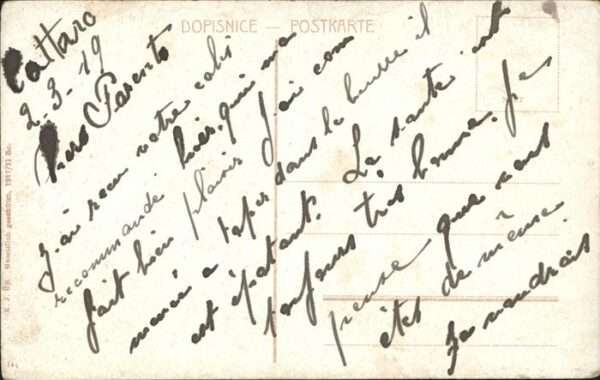 DOPISNICE — POSTKARTE
Cattaro
2-3-19
Chers Parents
J'ai reçu votre colis
recommandé hier, qui me
fait bien plaisir J'ai com
mencé a taper dans le beurre il
est épatant. La santé est
toujours très bonne. Je
pense que vous
êtes de même.
Je voudrais